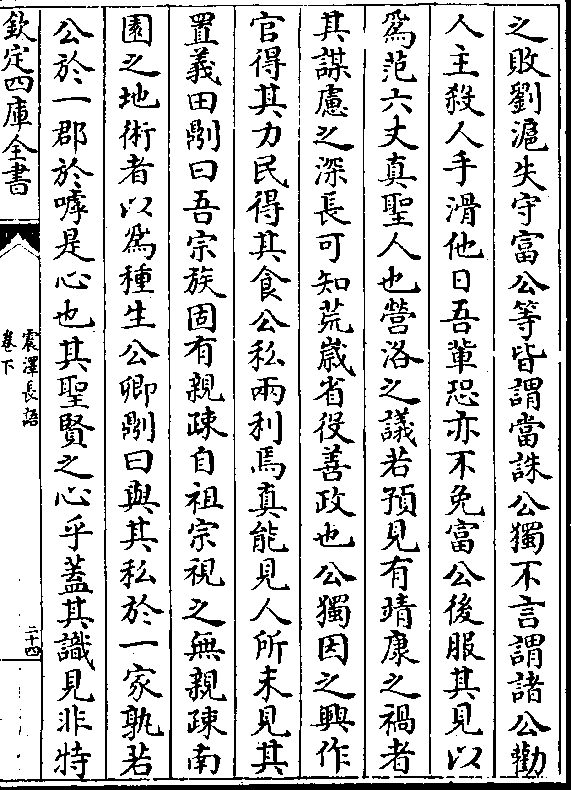 之敗劉滬失守富公等皆謂當誅公獨不言謂諸公勸
人主殺人手滑他日吾輩恐亦不免富公後服其見以
爲范六丈真聖人也營洛之議若預見有靖康之禍者
其謀慮之深長可知荒嵗省役善政也公獨因之興作
官得其力民得其食公私兩利焉真能見人所未見其
置義田則曰吾宗族固有親疎自祖宗視之無親疎南
園之地術者以爲種生公卿則曰與其私於一家孰若
公於一郡於嘑是心也其聖賢之心乎蓋其識見非特
欽定四庫全書
震澤長語
卷下
二十四